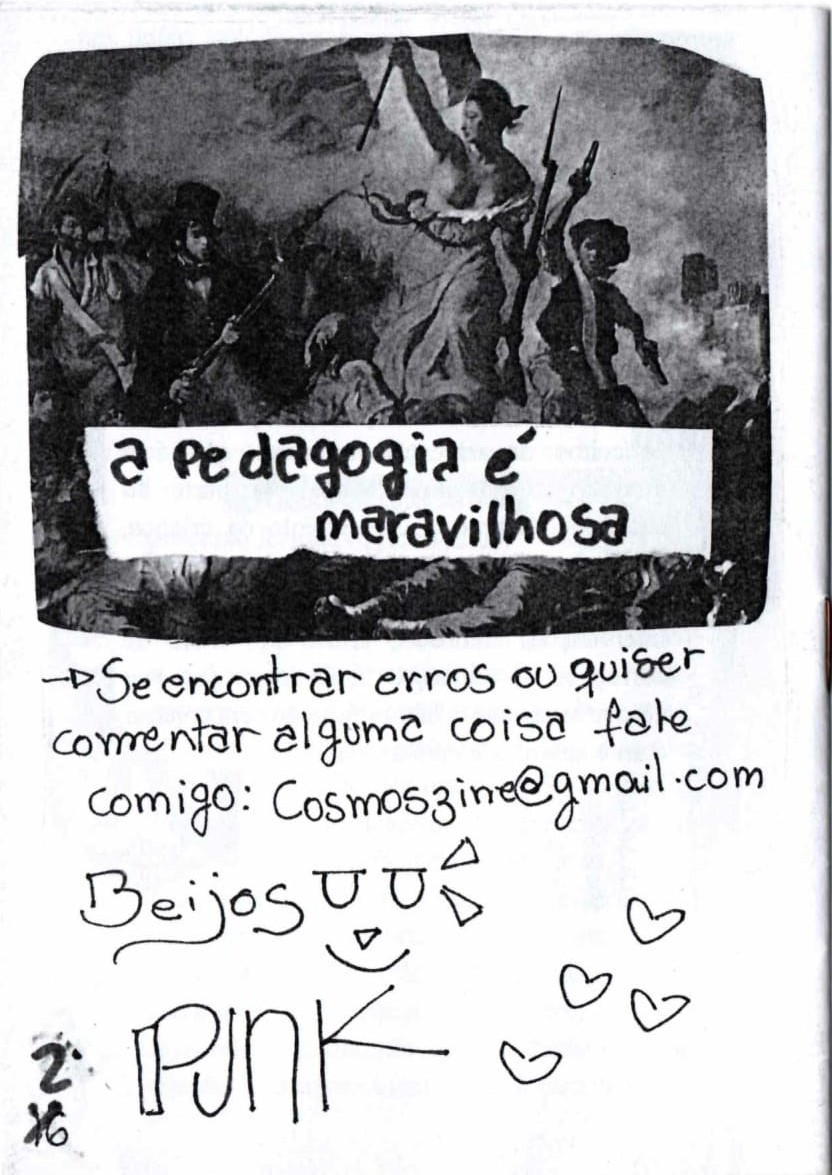 a Pedagogia é
maravilhosa
→ Se encontrar erros ou quiser
comentar alguma coisa fale
comigo: Cosmoszine@gmail.com
Beijos
PUNK
2
16